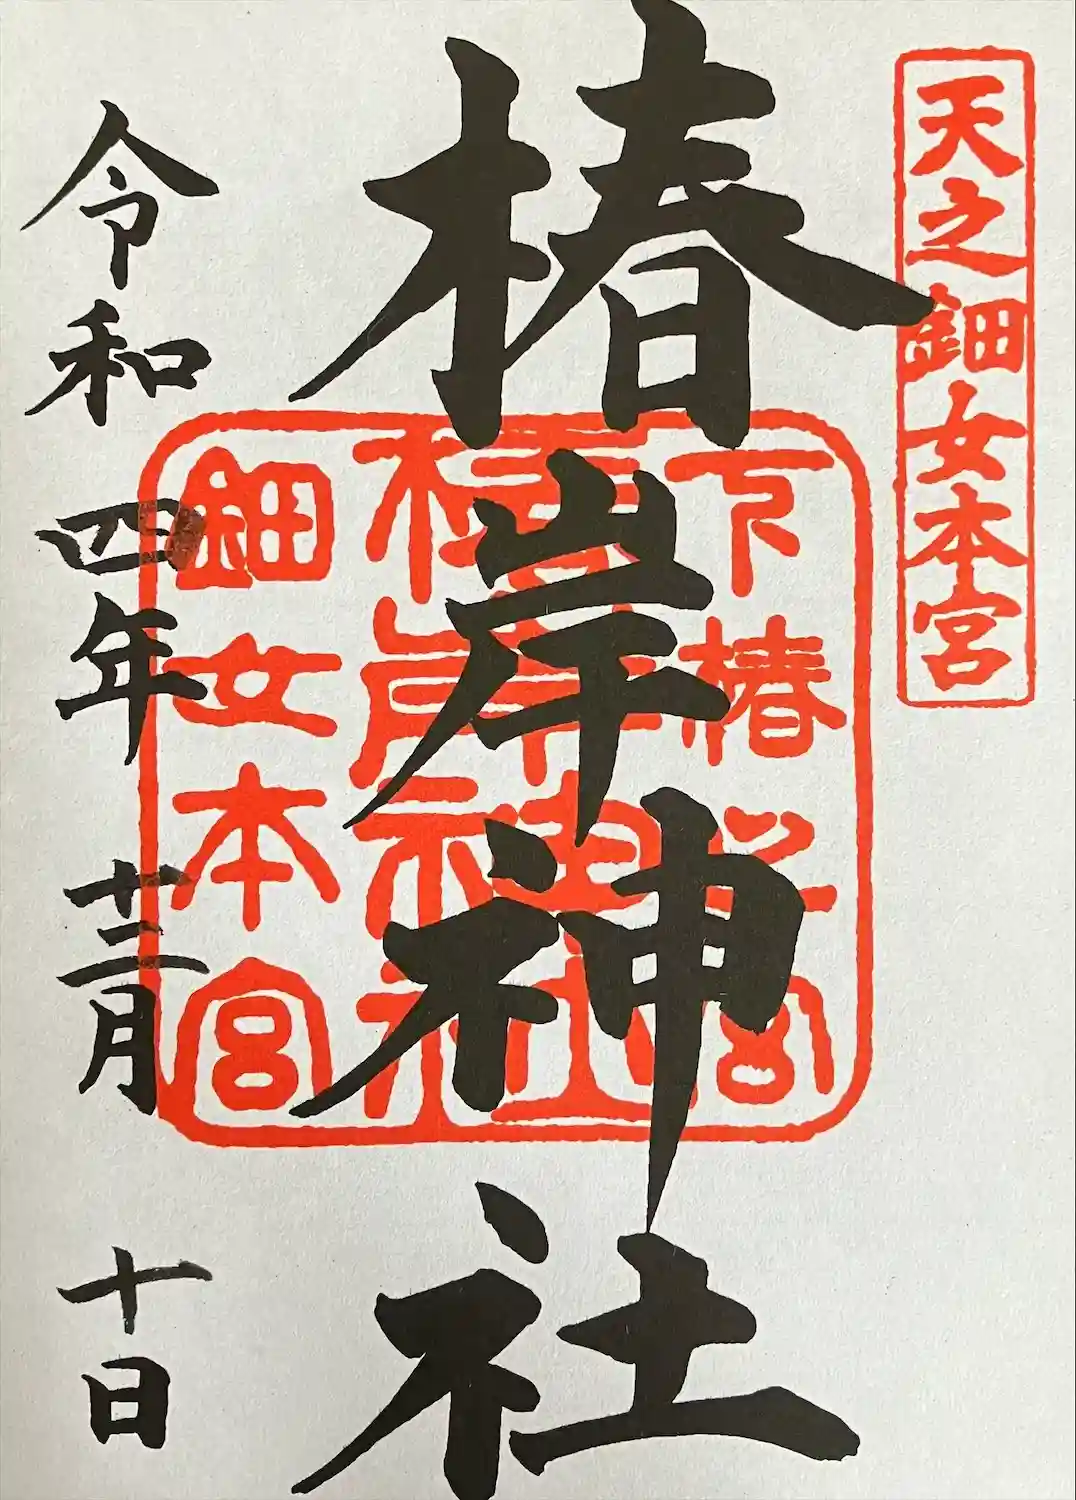 天之鈿女本宮
椿岸神社
下椿之宮
椿岸神社
鈿女本宮
令和四年十二月十日